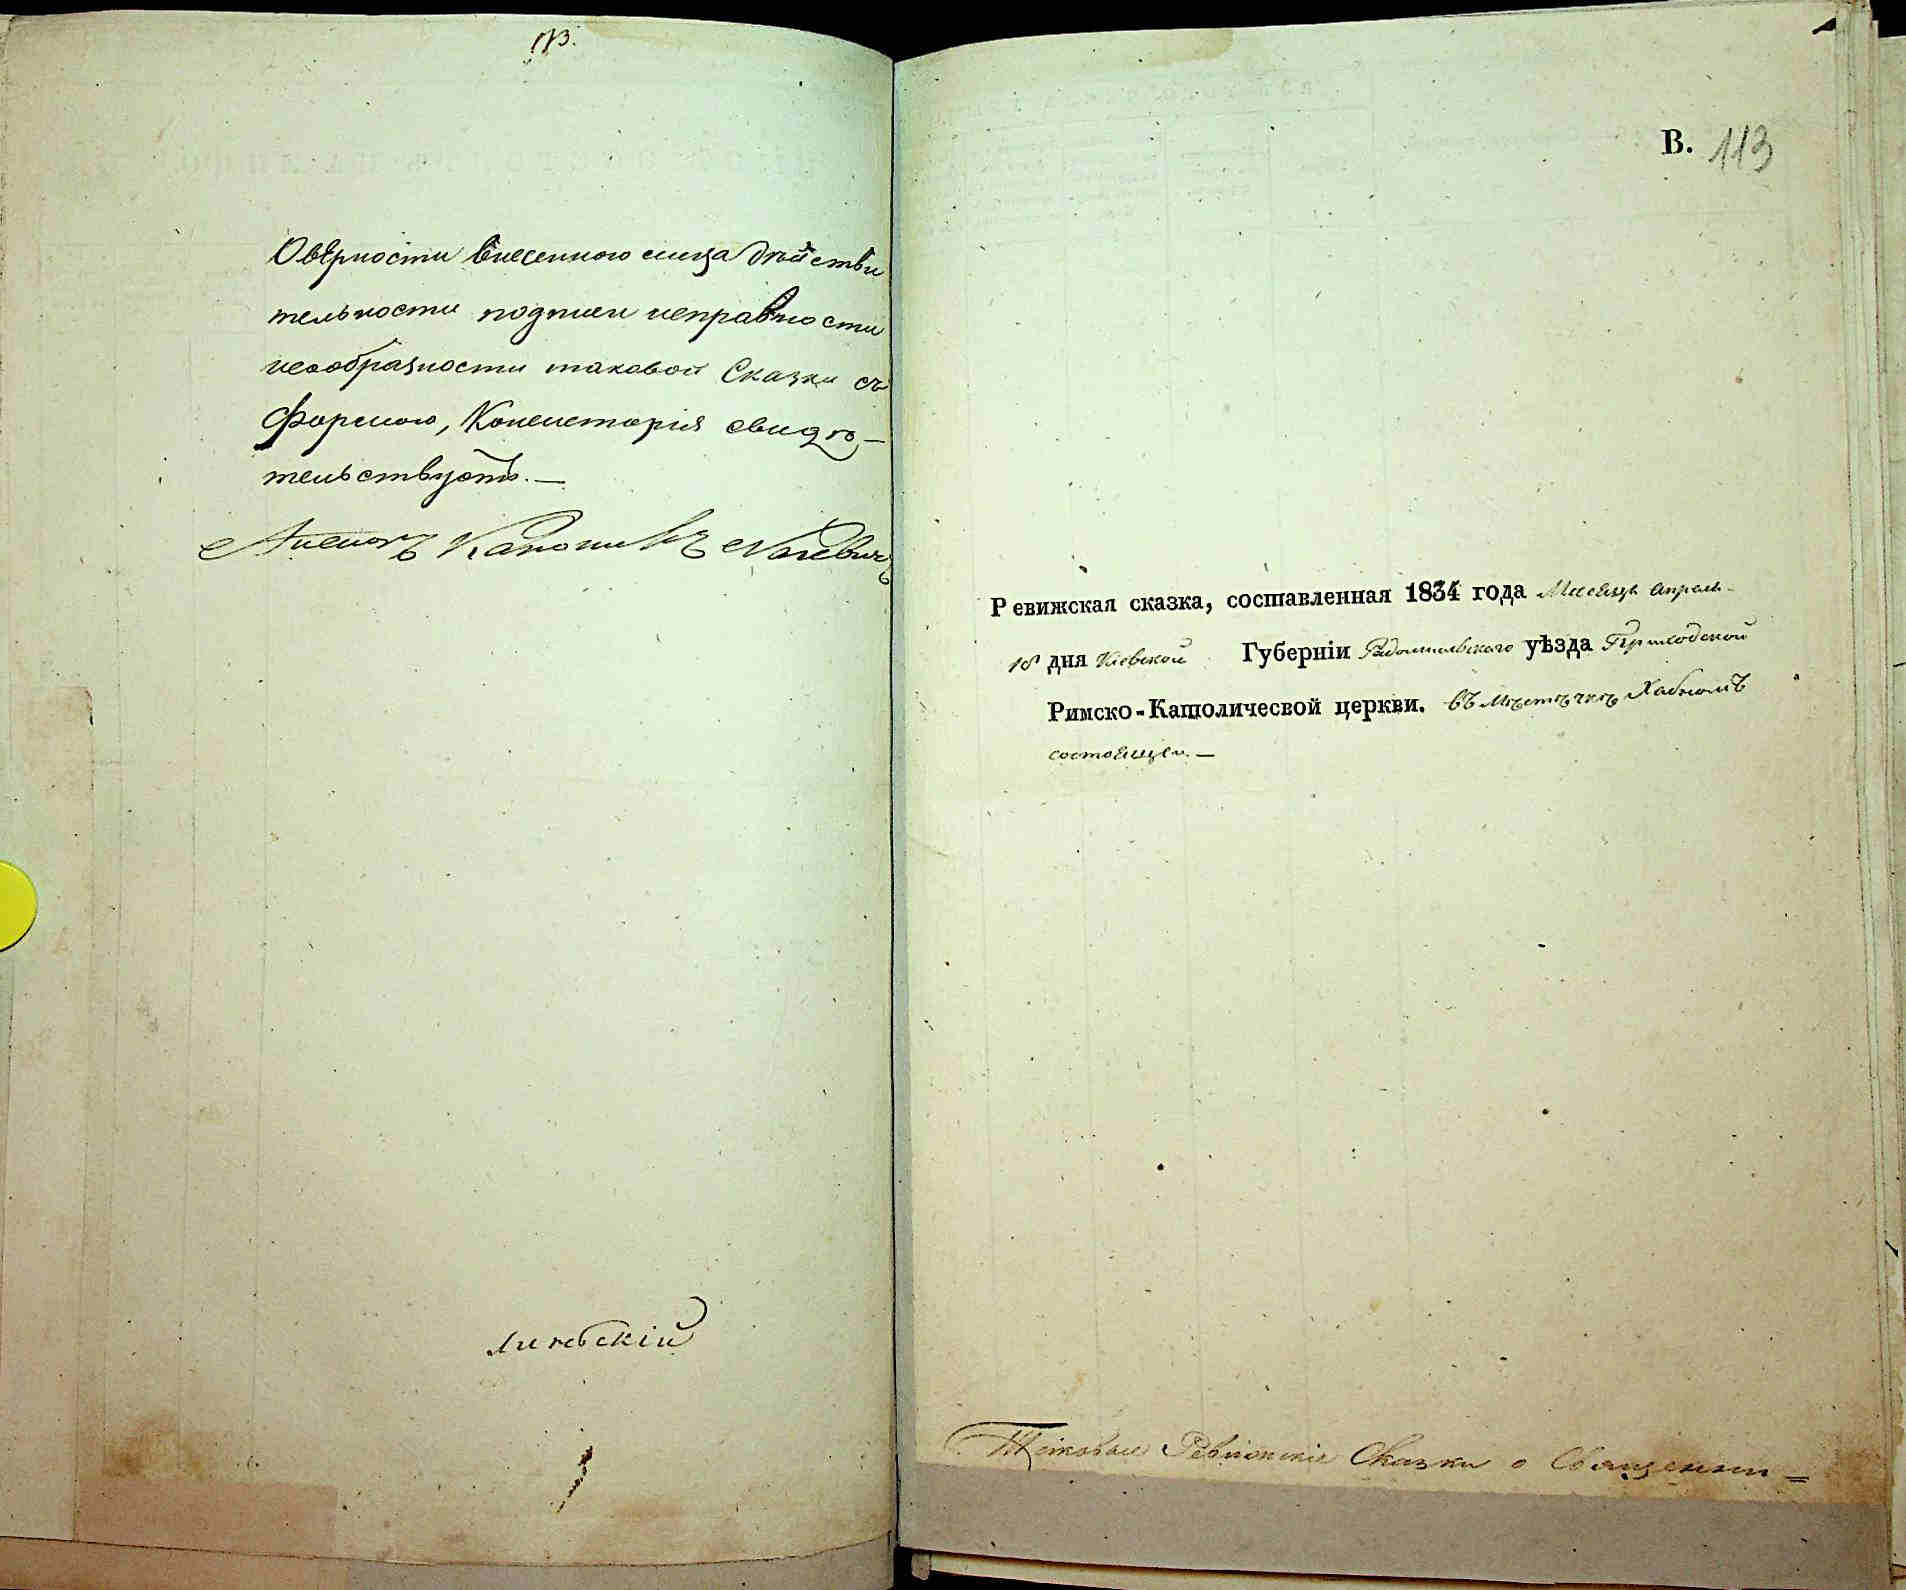 О вѣрности внесеннаго лица дѣйстви
тельности подписи исправности
исообразности таковой Сказки съ
Формою, Консисторія свидѣ-
тельствуетъ. —
Каноникъ
В. 113
Ревижская сказка, составленная 1834 года Месяца Апреля
18 дня Кіевской Губерніи Радомысльскаго уѣзда Приходской
Римско-Католичесвой церкви. въ Мѣстѣчкѣ Хабномъ
состоящей. —
Таковые Ревижскіе Сказки о Священни=